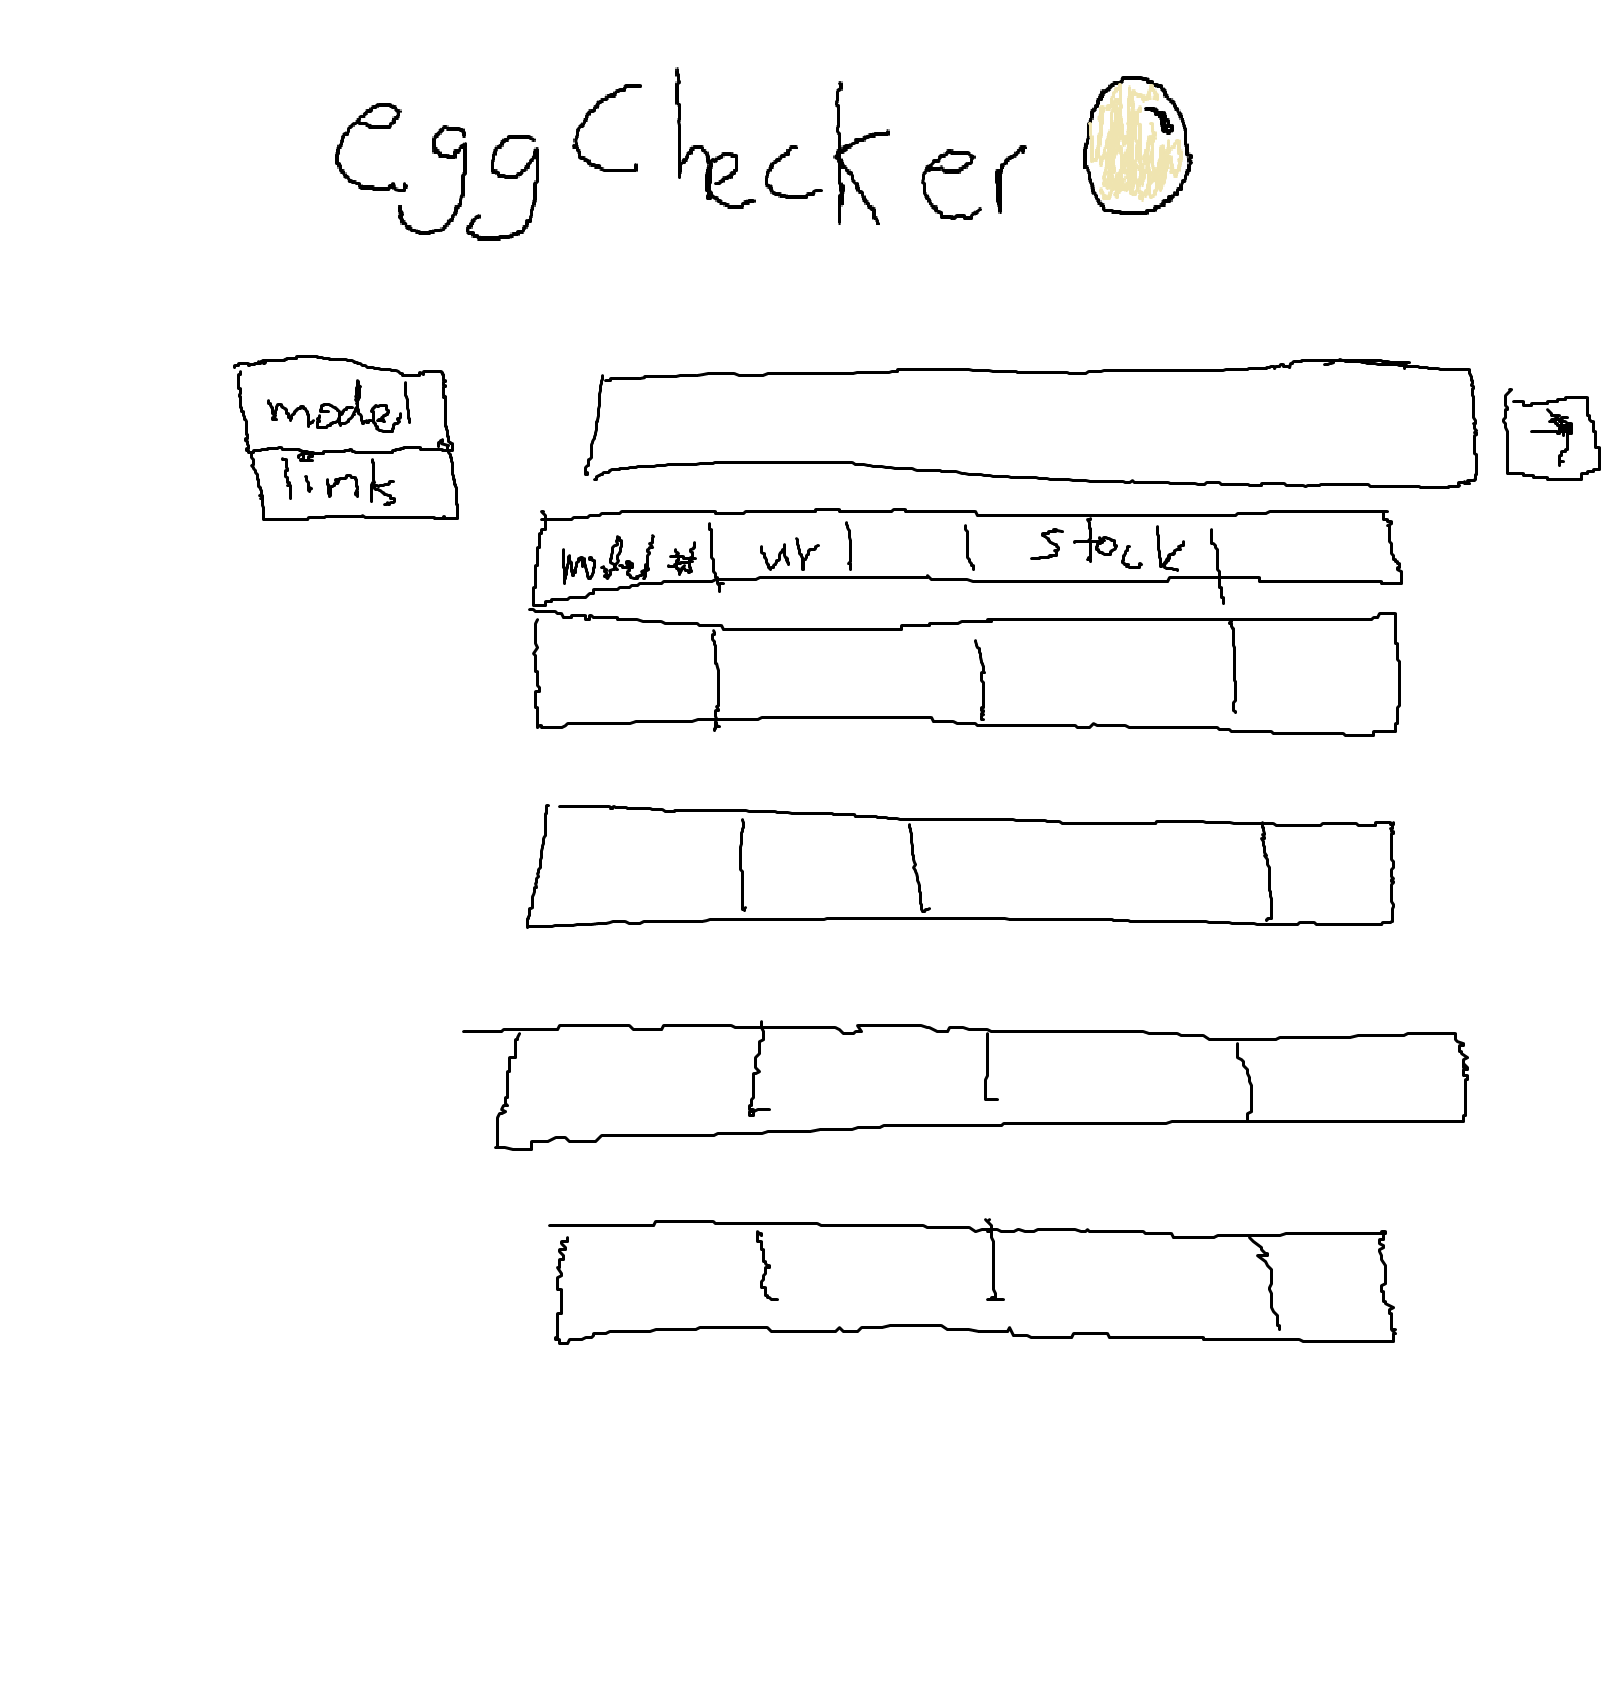 eggChecker
model
link
model # ur stock